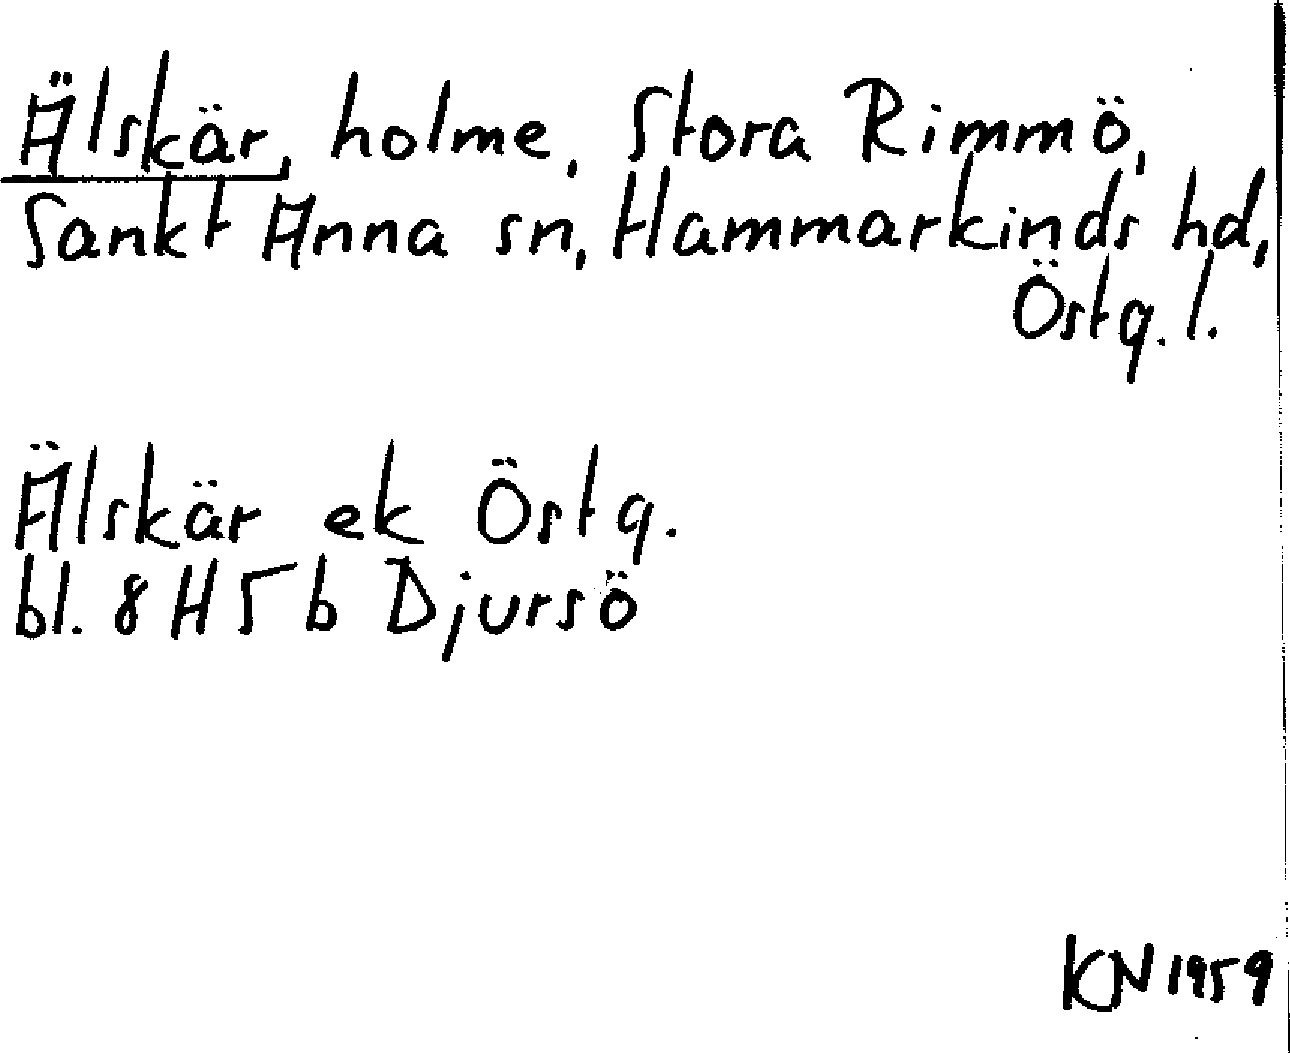 Älskär, holme, Stora Rimmö,
Sankt Anna sn, Hammarkinds hd,
Östg. l.
Älskär ek Östg.
bl. 8 H 5 b Djursö
KN 1959